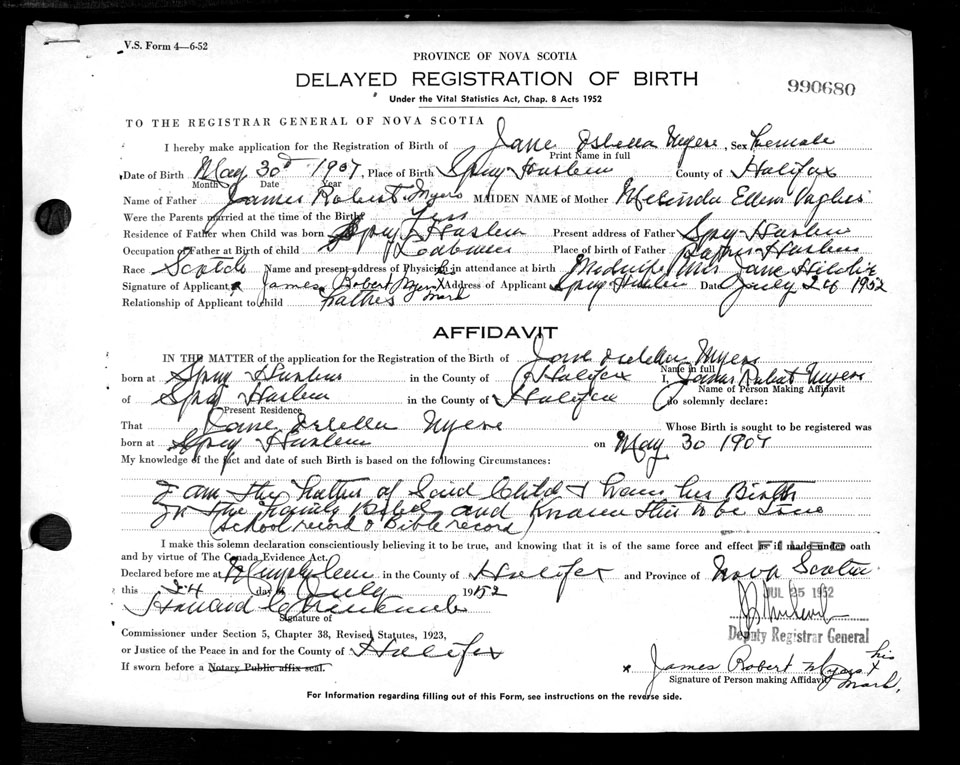 V.S. Form 4—6-52
PROVINCE OF NOVA SCOTIA
DELAYED REGISTRATION OF BIRTH
990680
Under the Vital Statistics Act, Chap. 8 Acts 1952
TO THE REGISTRAR GENERAL OF NOVA SCOTIA
I hereby make application for the Registration of Birth of Jane Isbella Myers, Sex Female
Print Name in full
Date of Birth May 30 1907, Place of Birth Spry Harbour County of Halifax
Month Date Year
Name of Father James Robert Myers MAIDEN NAME of Mother Melinda Ellen
Were the Parents married at the time of the Birth Yes
Residence of Father when Child was born Spry Harbour Present address of Father Spry Harbour
Occupation of Father at Birth of child Place of birth of Father
Race Scotch Name and present address of Physician in attendance at birth Midwife Mrs Jane
Signature of Applicant x James Robert Myers his x mark Address of Applicant Spry Harbour Date July 24 1952
Relationship of Applicant to child Father
AFFIDAVIT
IN THE MATTER of the application for the Registration of the Birth of Jane Isbella Myers
Name in full
born at Spry Harbour in the County of Halifax I, James Robert Myers
Name of Person Making Affidavit
of Spry Harbour in the County of Halifax do solemnly declare:
Present Residence
That Jane Isbella Myers Whose Birth is sought to be registered was
born at Spry Harbour on May 30 1907
My knowledge of the fact and date of such Birth is based on the following Circumstances:
I am the Father of Said Child & have her Birth
In the Family Bible and Know this to be True
(School record & Bible record)
I make this solemn declaration conscientiously believing it to be true, and knowing that it is of the same force and effect as if made under oath
and by virtue of The Canada Evidence Act.
Declared before me at in the County of Halifax and Province of Nova Scotia
this 24 day of July 1952
JUL 25 1952
Howard
Signature of
Deputy Registrar General
Commissioner under Section 5, Chapter 38, Revised Statutes, 1923,
or Justice of the Peace in and for the County of Halifax
If sworn before a Notary Public affix seal.
x James Robert Myers his x mark.
Signature of Person making Affidavit
For Information regarding filling out of this Form, see instructions on the reverse side.